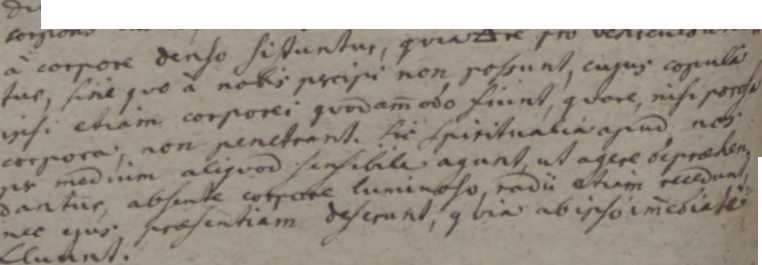 corpore
à corpore denso sistuntur, quia aëre pro vehiculo
tur, sine quo à nobis percipi non possunt, cujus copula
ipsi etiam corporei quodam̃odo fiunt, quare, nisi porosa
corpora, non penetrant. Sic spiritualia apud nos
per medium aliquod sensibile agunt, ut agere depræhen
dantur, absente corpore luminoso, radii etiam recedunt,
nec ejus præsentiam deserunt, quia ab ipso im̃ediatè
fluunt.